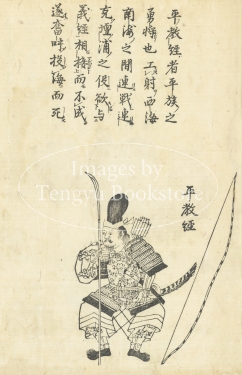 平教經者平族之
勇将也工射西海
南海之間連戰連
克壇浦之役欲与
義經相搏而不成
遂奮呼投海而死
平教經
Images by
Tengyu Bookstore